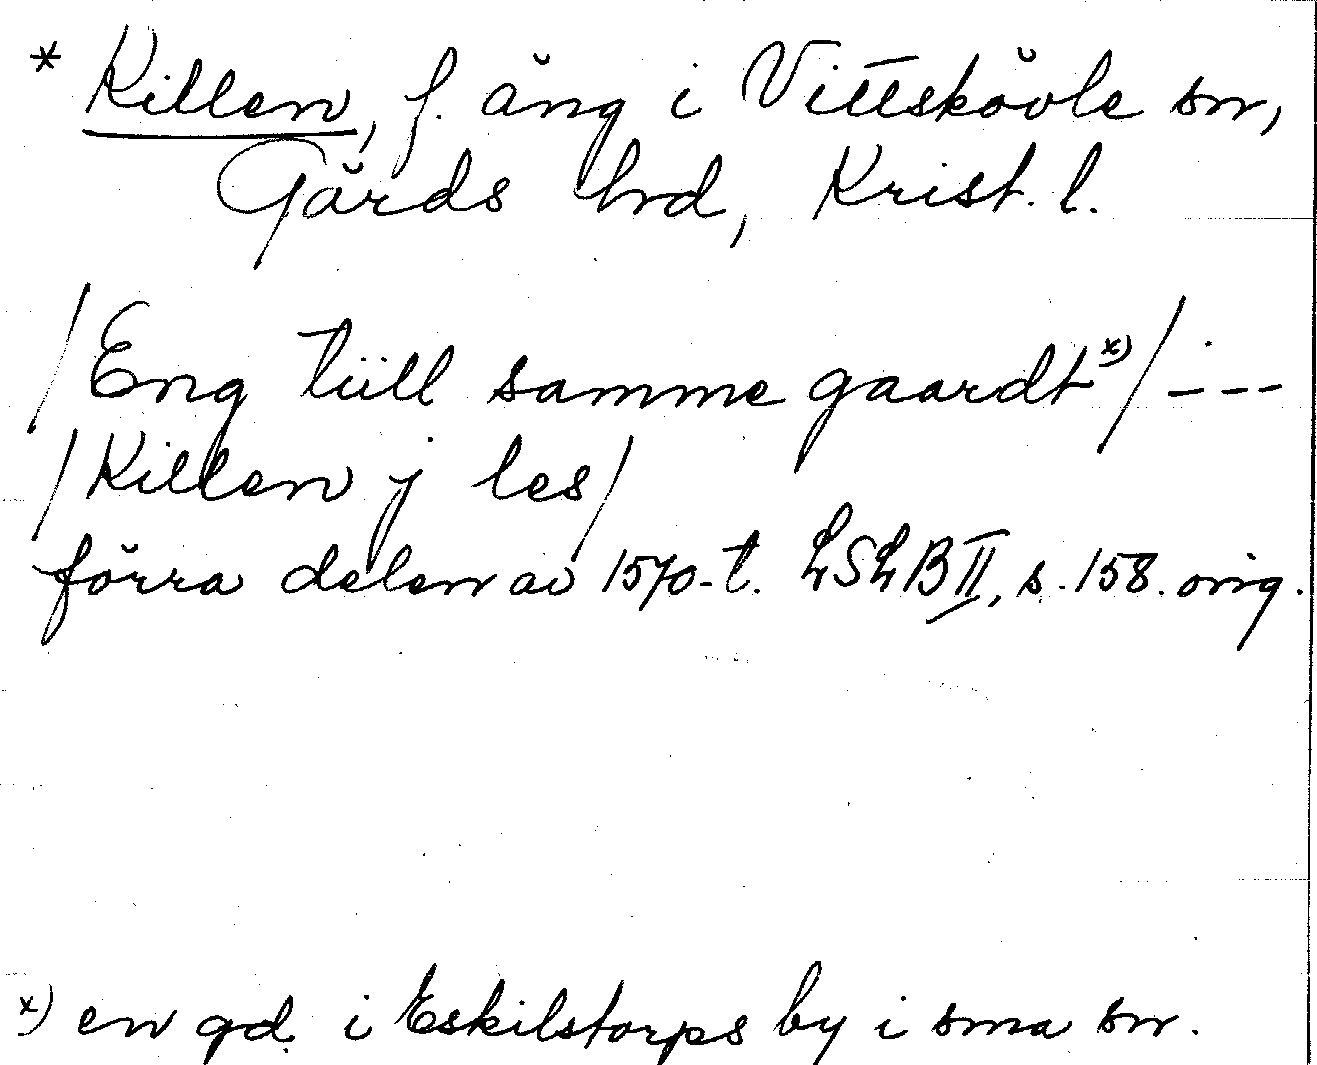 * Killen, f. äng i Vittskövle sn,
Gärds hd, Krist. l.
/Eng tiill samme gaardt x)/ ---
/Killen j les/
förra delen av 1570-t. LSLB II, s. 158. orig.
x) en gd. i Eskilstorps by i sma sn.